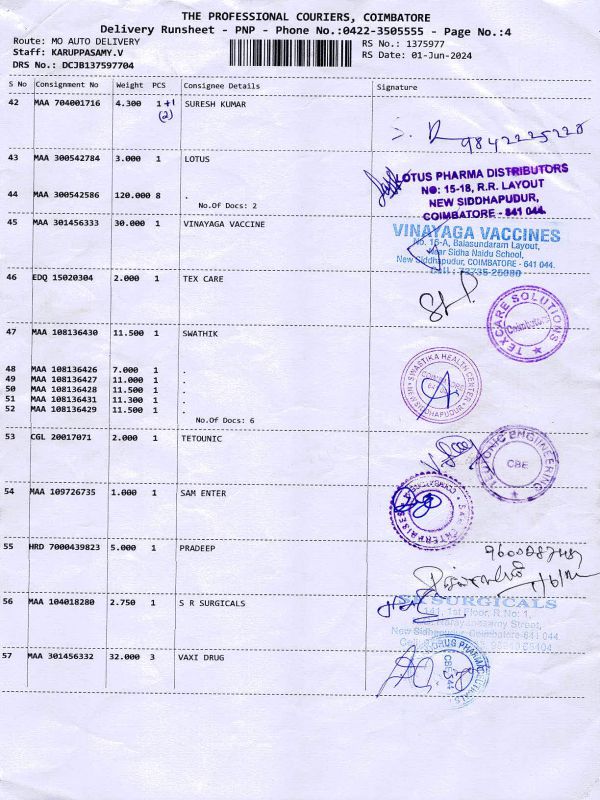 THE PROFESSIONAL COURIERS, COIMBATORE
Delivery Runsheet - PNP - Phone No.:0422-3505555 - Page No.:4
Route: MO AUTO DELIVERY RS No.: 1375977
Staff: KARUPPASAMY.V RS Date: 01-Jun-2024
DRS No.: DCJB137597704
S No Consignment No Weight PCS Consignee Details Signature
42 MAA 704001716 4.300 1+1 SURESH KUMAR
(2)
9842225228
43 MAA 300542784 3.000 1 LOTUS
LOTUS PHARMA DISTRIBUTORS
NO: 15-18, R.R. LAYOUT
NEW SIDDHAPUDUR,
COIMBATORE - 641 044.
44 MAA 300542586 120.000 8 .
No.Of Docs: 2
45 MAA 301456333 30.000 1 VINAYAGA VACCINE
VINAYAGA VACCINES
No. 16-A, Balasundaram Layout,
Near Sidha Naidu School,
New Siddhapudur, COIMBATORE - 641 044.
46 EDQ 15020304 2.000 1 TEX CARE
TEXCARE SOLUTIONS
Coimbatore
47 MAA 108136430 11.500 1 SWATHIK
SWASTIKA HEALTH CENTER
48 MAA 108136426 7.000 1 .
49 MAA 108136427 11.000 1 .
50 MAA 108136428 11.500 1 .
51 MAA 108136431 11.300 1 .
52 MAA 108136429 11.500 1 .
No.Of Docs: 6
53 CGL 20017071 2.000 1 TETOUNIC
ENGINEERING
CBE
54 MAA 109726735 1.000 1 SAM ENTER
ENTERPRISES
55 HRD 7000439823 5.000 1 PRADEEP
56 MAA 104018280 2.750 1 S R SURGICALS
SR SURGICALS
1st Floor, R.No: 1,
57 MAA 301456332 32.000 3 VAXI DRUG